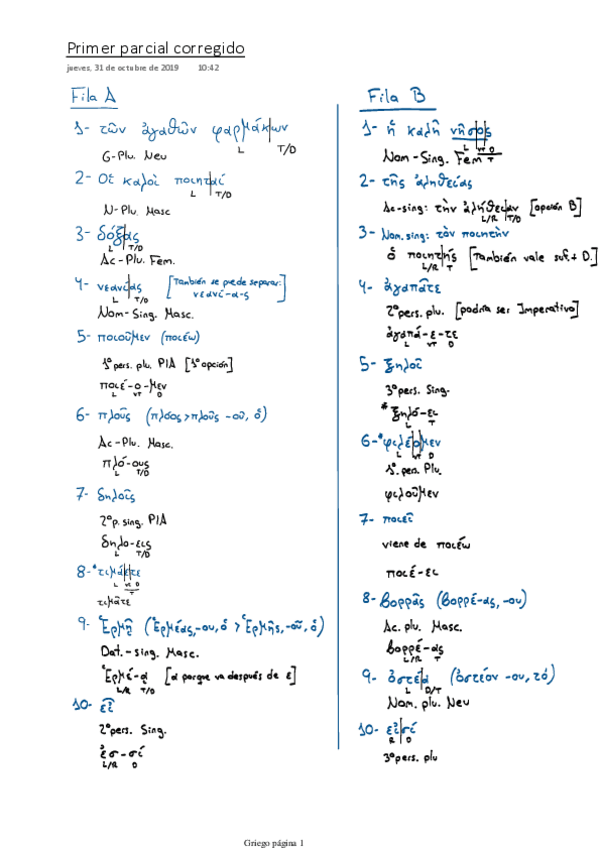 Primer parcial corregido
jueves, 31 de octubre de 2019 10:42
Fila A
1- τῶν ἀγαθῶν φαρμάκων
L T/D
G-Plu. Neu
2- Οἱ καλοὶ ποιηταί
L T/D
N-Plu. Masc
3- δόξας
L T/D
Ac-Plu. Fem.
4- νεανίας [También se puede separar: νεανί-α-ς]
L T/D
Nom-Sing. Masc.
5- ποιοῦμεν (ποιέω)
1ª pers. plu. PIA [1ª opción]
ποιέ-ο-μεν
L VT D
6- πλοῦς (πλόος > πλοῦς -οῦ, ὁ)
Ac-Plu. Masc.
πλό-ους
L T/D
7- δηλοῖς
2ª p. sing. PIA
δηλο-εις
L T/D
8- *τιμάετε
L VT D
τιμᾶτε
9- Ἑρμῇ (Ἑρμέας, -ου, ὁ > Ἑρμῆς, -οῦ, ὁ)
Dat.-sing. Masc.
Ἑρμέ-ᾳ [α porque va después de ε]
L/R T/D
10- εἶ
2ª pers. Sing.
ἐσ-σί
L/R D
Fila B
1- ἡ καλὴ νῆσος
L VT D
T
Nom-Sing. Fem
2- τῆς ἀληθείας
Ac-sing: τὴν ἀλήθειαν [opción B]
L/R T/D
3- Nom. sing: τὸν ποιητὴν
ὁ ποιητής [También vale suf. + D.]
L/R T
4- ἀγαπᾶτε
2ª pers. plu. [podría ser Imperativo]
ἀγαπά-ε-τε
L VT D
5- ξηλοῖ
3ª pers. Sing.
*ξηλό-ει
L T
6- *φιλέομεν
L VT D
1ª. pers. Plu.
φιλοῦμεν
7- ποιεῖ
viene de ποιέω
ποιέ-ει
8- βορρᾶς (βορρέ-ας, -ου)
Ac. plu. Masc.
βορρέ-ας
L/R T
9- ὀστέα (ὀστέον -ου, τό)
L D/T
Nom. plu. Neu
10- εἰσί
R D
3ª pers. plu
Griego página 1